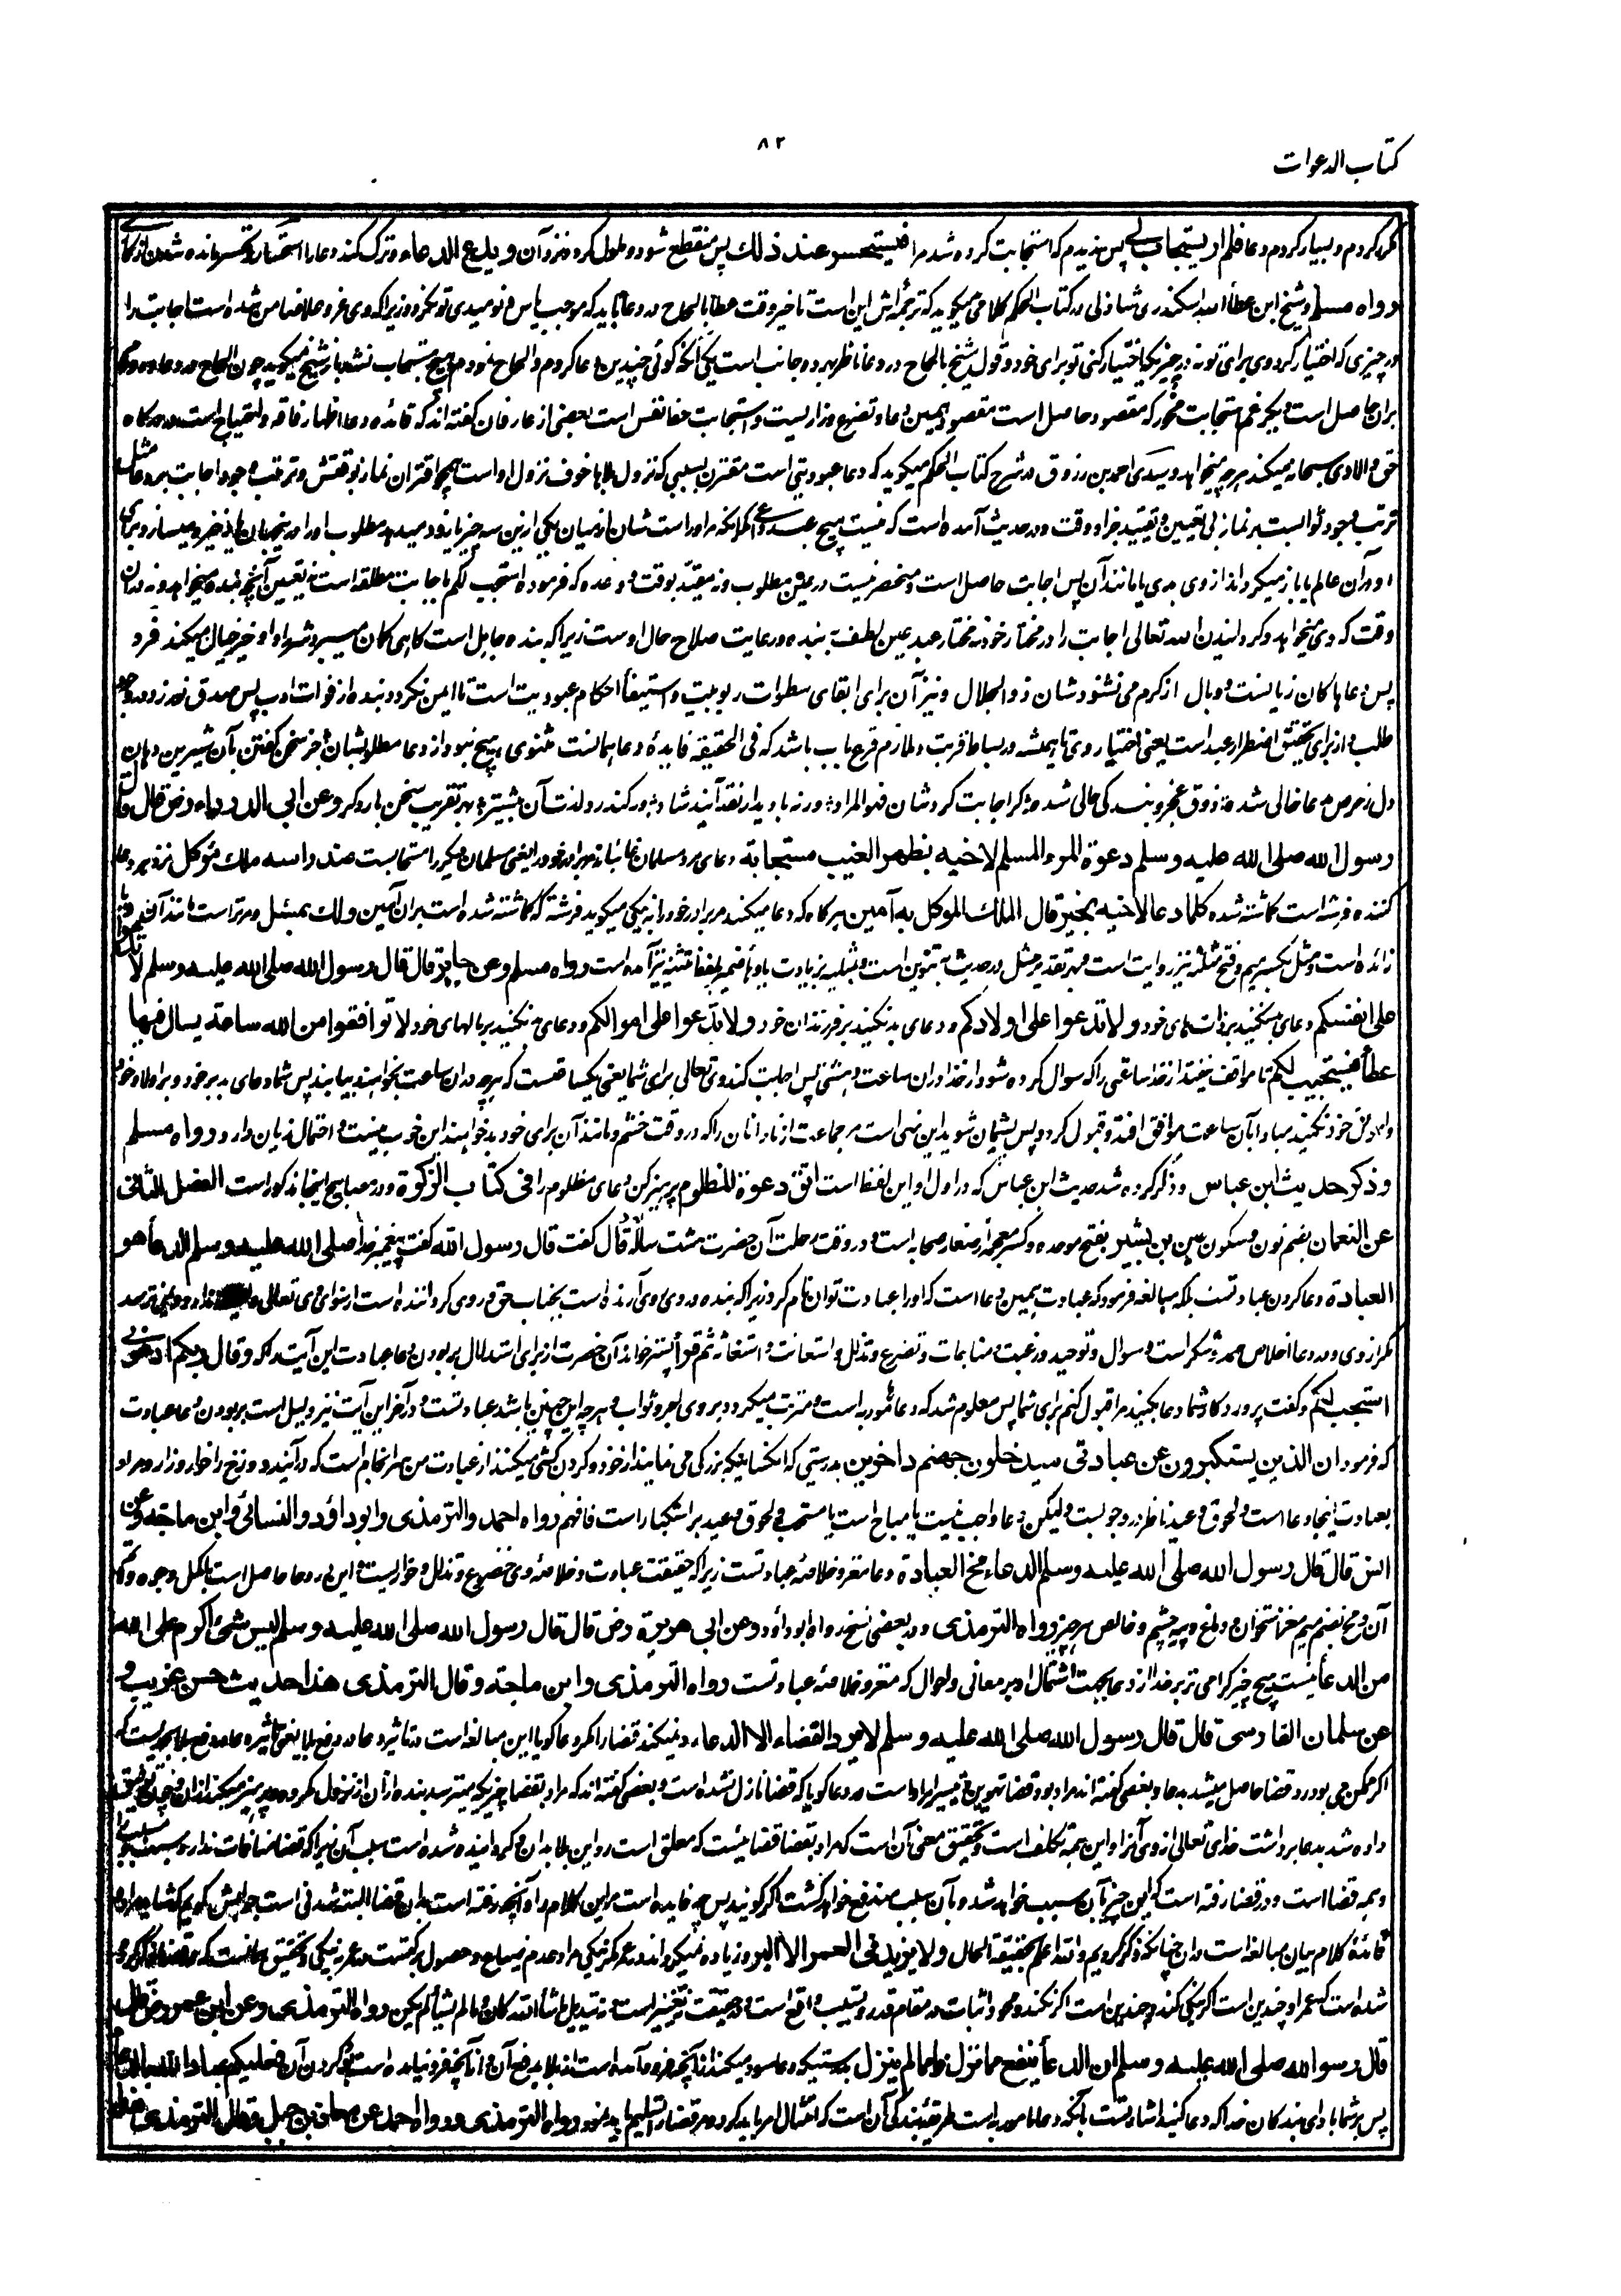 کتاب الدعوات
۸۲
کردم و بسیار کردم دعا فلم ار یستجاب لی پس ندیدم که استجابت کرده شد مرا فیستحسر عند ذلك پس منقطع شود و ملول گردد نزد آن و یدع الدعاء و ترک کند دعا را
رواه مسلم و شیخ ابن عطاء الله اسکندری شاذلی در کتاب الحکم کلامی میگوید که ترجمه اش این است تاخیر وقت عطا با الحاح در دعا باید که موجب یاس و نومیدی تو نگردد زیرا که وی عز و علا ضامن شده است اجابت را
در چیزی که اختیار کرد وی برای تو نه در چیزیکه اختیار کنی تو برای خود و قول شیخ با الحاح در دعا ناظر بهر دو جانب است یکی آنکه گوئی چندین دعا کردم و الحاح نمودم هیچ مستجاب نشد باز شیخ میگوید چون الحاح در دعا
بران حاصل است دیگر غم استجابت مخور که مقصود حاصل است مقصود همین دعا و تضرع و زاریست و استجابت حظ نفس است بعضی از عارفان گفته اند که فائده دعا اظهار فاقه و احتیاج است در درگاه
حق و الا وی سبحانه میکند هرچه میخواهد و سیدی احمد بن زروق در شرح کتاب الحکم میگوید که دعا عبودیتی است مقترن بسببی که نزول بلا یا خوف نزول او است همچو اقتران نماز بوقتش و ترتب وجود اجابت بر دعا مثل
ترتب وجود ثوابست بر نماز بی تعیین و تقیید جزا و وقت و در حدیث آمده است که نیست هیچ عبد داعی مگر آنکه مر او راست شان از میان یکی ازین سه چیز یا زود میدهد مطلوب او را
او در آن عالم یا باز میگرداند از وی بدی یا مانند آن پس اجابت حاصل است و منحصر نیست در عین مطلوب و نه مقید بوقت و وعده که فرموده استجب لکم باجابت مطلقه است نه تعیین آنچه بنده میخواهد و نه در آن
وقت که وی میخواهد و گردانیدن الله تعالی اجابت را در مختار خود نه مختار عبد عین لطف به بنده و رعایت صلاح حال اوست زیرا که بنده جاهل است گاهی گمان میبرد شر را و او خیر خیال میکند فرد
پس دعاها کان زیانست و وبال از کرم می نشنود شان ذو الجلال و نیز آن برای ابقای سطوات ربوبیت و استیفاء احکام عبودیت است تا ایمن نگردد بنده از فوات ادب پس صدق
طلب و از برای تحقق اضطرار عبد است یعنی اختیار روی تا همیشه در بساط قربت و ملازم قرع باب باشد که فی الحقیقه فایدهٔ دعا همانست مثنوی هیچ نبود از دعا مطلوب شان جز سخن گفتن بآن شیرین دهان
دل ز حرص مدعا خالی شده ذوق عجز و بندگی حالی شده گر اجابت کرد شان فهو المراد ور نه با دیدار نقد آیند شاد ور کند رد لذت آن بیشتر بهر تقریب سخن بار دگر وعن ابی الدرداء رض قال قال
رسول الله صلی الله علیه وسلم دعوة المرء المسلم لاخیه بظهر الغیب مستجابة دعای مرد مسلمان غائبانه مر برادر خود را یعنی مسلمان دیگر را مستجابست عند راسه ملك موکل نزد سر دعا
کننده فرشته است گماشته شده کلما دعا لاخیه بخیر قال الملك الموکل به آمین هرگاه که دعا میکند مر برادر خود را به نیکی میگوید فرشته که گماشته شده است بران آمین ولك بمثل و مر تراست مانند آن
زائده است و مثل بکسر میم و فتح مثلثه نیز روایت است و بهر تقدیر مثل در حدیث به تنوین است و بمثلیه بزیادت یاء و هاء ضمیر بلفظ تثنیه نیز آمده است رواه مسلم وعن جابر قال قال رسول الله صلی الله علیه وسلم لا تدعوا
علی انفسکم دعای بد نکنید بر ذات های خود ولا تدعوا علی اولادکم و دعای بد نکنید بر فرزندان خود ولا تدعوا علی اموالکم و دعای بد نکنید بر مالهای خود لا توافقوا من الله ساعة یسال فیها
عطاء فیستجیب لکم تا موافق نیفتد از خدا ساعتی را که سوال کرده شود از خدا دران ساعت بخششی پس اجابت کند وی تعالی برای شما یعنی یکساعتست که هرچه دران ساعت بخواهند بیابند پس شما دعای بد بر خود و بر اولاد خود
و اموال خود نکنید مبادا بآن ساعت موافق افتد و قبول گردد پس پشیمان شوید این نهی است مر جماعت از نادانان را که در وقت خشم و مانند آن برای خود بد خواهند این خوب نیست و احتمال زیان دارد رواه مسلم
وذکر حدیث ابن عباس و ذکر کرده شد حدیث ابن عباس که در اول او این لفظ است اتق دعوة المظلوم بپرهیز کن دعای مظلوم را فی کتاب الزکوة و در مصابیح اینجا مذکور است الفصل الثانی
عن النعمان بضم نون و سکون عین بن بشیر بفتح موحده و کسر معجمه از صغار صحابه است و در وقت رحلت آن حضرت هشت ساله قال گفت قال رسول الله گفت پیغمبر خدا صلی الله علیه وسلم الدعاء هو
العبادة دعا کردن عبادتست بلکه مبالغه فرمود که عبادت همین دعا است که او را عبادت توان نام کرد زیرا که بنده در وی روی آرنده است بجناب حق و روی گرداننده است از سوای وی تعالی
مگر از وی و در دعا اخلاص حمد و شکر است و سوال و توحید و رغبت و مناجات و تضرع و تذلل و استعانت و استغاثه ثم قرأ پستر خواند آن حضرت از برای استدلال بر بودن دعا عبادت این آیت را که وقال ربکم ادعونی
استجب لکم و گفت پروردگار شما دعا بکنید مرا قبول کنم برای شما پس معلوم شد که دعا مامور به است و مترتب میگردد بر وی اجر و ثواب و هرچه این چنین باشد عبادتست و در آخر این آیت نیز دلیل است بر بودن دعا عبادت
که فرمود ان الذین یستکبرون عن عبادتی سیدخلون جهنم داخرین بدرستی که آنکسانیکه بزرگی می نمایند از خود و گردن کشی میکنند از عبادت من سرانجام است که درآیند دوزخ را خوار و زار و مراد
بعبادت اینجا دعا است و لحوق وعید ناظر در وجوبست و لیکن دعا واجب نیست یا مباح است یا مستحب و لحوق وعید بر استکبار است فافهم رواه احمد والترمذی وابو داؤد والنسائی وابن ماجة وعن
انس قال قال رسول الله صلی الله علیه وسلم الدعاء مخ العبادة دعا مغز و خلاصهٔ عبادتست زیرا که حقیقت عبادت و خلاصهٔ وی خضوع و تذلل و خواریست و این در دعا حاصل است باکمل وجوه
آن و مخ بضم میم مغز استخوان و دماغ و پیه چشم و خالص هر چیز رواه الترمذی و در بعضی نسخ رواه ابوداؤد وعن ابی هریرة رض قال قال رسول الله صلی الله علیه وسلم لیس شئ اکرم علی الله
من الدعاء نیست هیچ چیز گرامی تر بر خدا از دعا بجهت اشتمال او بر معانی و احوال که مغز و خلاصهٔ عبادتست رواه الترمذی وابن ماجة وقال الترمذی هذا حدیث حسن غریب و
عن سلمان الفارسی قال قال رسول الله صلی الله علیه وسلم لا یرد القضاء الا الدعاء رد نمیکند قضا را مگر دعا گویا این مبالغه است در تاثیر دعا در دفع بلا
اگر ممکن می بود رد قضا حاصل میشد بدعا و بعضی گفته اند مراد برد قضا تهوین و تیسیر امر است در دعا گویا که قضا نازل نشده است و بعضی گفته اند که مراد بقضا چیزیکه میترسد بنده از آن از نزول مکروه و می پرهیز میکند از آن
داده شد بدعا برداشت خدای تعالی از وی آنرا و این همه تکلف است و تحقیق معنی آن است که مراد بقضا قضائیست که معلق است رد این بلا بدان و گردانیده شده است سبب آن زیرا که قضا منافات ندارد
و همه قضا است و در قضا رفته است که این چیز بآن سبب خواهد شد و بآن سبب مندفع خواهد گشت اگر گویند پس چه فایده است مر این کلام را و آنچه رفته است بدان قضا البته شدنی است جوابش گوییم
فائدهٔ کلام بیان مبالغه است دران چنانکه ذکر کردیم والله اعلم بحقیقة الحال ولا یزید فی العمر الا البر و زیاده نمیگرداند در عمر مگر نیکی مراد عدم ضیاع و حصول برکتست در عمر به نیکی و تحقیق
شده است که عمر او چندین است اگر نیکی کند و چندین است اگر نکند و محو و اثبات در مقام قدر و تسبیب واقع است و در حقیقت نه تغییر است نه تبدیل ما شاء الله کان وما لم یشأ لم یکن رواه الترمذی وعن ابن عمر رض قال
قال رسول الله صلی الله علیه وسلم ان الدعاء ینفع مما نزل ومما لم ینزل بدرستیکه دعا سود میکند از آنچه فرود آمده است از بلا بدفع آن و از آنچه فرو نیامده است فعلیکم عباد الله بالدعاء
پس بر شما باد ای بندگان خدا که دعا کنید اشارتست بآنکه دعا مامور به است طریقهٔ بندگی آن است که امتثال امر باید کرد و در قضا را تسلیم باید نمود رواه الترمذی ورواه احمد عن معاذ بن جبل وقال الترمذی